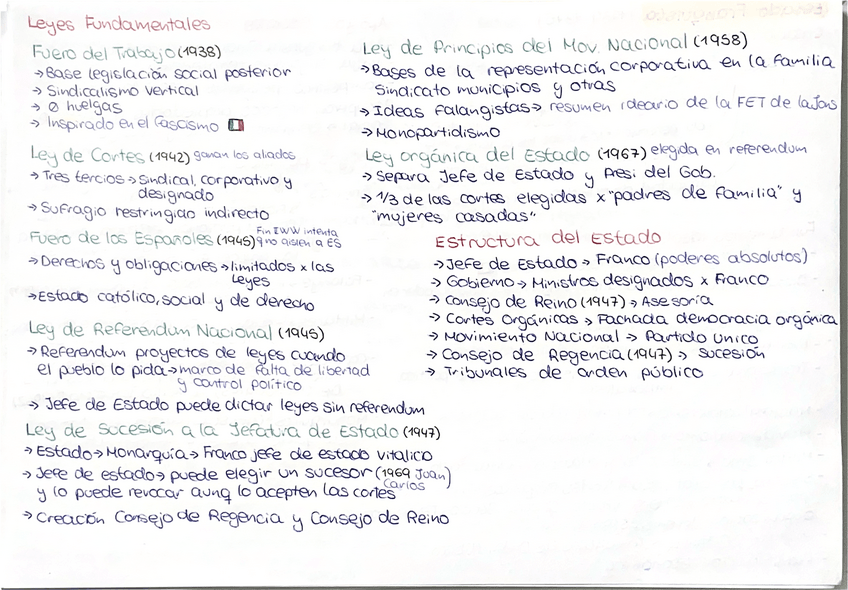 Leyes Fundamentales
Fuero del Trabajo (1938)
→ Base legislación social posterior
→ Sindicalismo vertical
→ Ø huelgas
→ Inspirado en el Fascismo
Ley de Cortes (1942) ganan los aliados
→ Tres tercios → Sindical, corporativo y
designado
→ Sufragio restringido indirecto
Fuero de los Españoles (1945) Fin IIWW intenta
q no aislen a ES
→ Derechos y obligaciones → limitados x las
leyes
→ Estado católico, social y de derecho
Ley de Referendum Nacional (1945)
→ Referendum proyectos de leyes cuando
el pueblo lo pida → marco de falta de libertad
y control político
→ Jefe de Estado puede dictar leyes sin referendum
Ley de Sucesión a la Jefatura de Estado (1947)
→ Estado → Monarquía → Franco jefe de estado vitalico
→ Jefe de estado → puede elegir un sucesor (1969 Juan
Carlos)
y lo puede revocar aunq lo acepten las cortes
→ Creación Consejo de Regencia y Consejo de Reino
Ley de Principios del Mov. Nacional (1958)
→ Bases de la representación corporativa en la familia
Sindicato municipios y otras
→ Ideas falangistas → resumen ideario de la FET de la Jons
→ Monopartidismo
Ley orgánica del Estado (1967) elegida en referendum
→ Separa Jefe de Estado y Presi del Gob.
→ 1/3 de las cortes elegidas x "padres de familia" y
"mujeres casadas"
Estructura del Estado
→ Jefe de Estado → Franco (poderes absolutos)
→ Gobierno → Ministros designados x Franco
→ Consejo de Reino (1947) → Asesoría
→ Cortes Orgánicas → Fachada democracia orgánica
→ Movimiento Nacional → Partido Unico
→ Consejo de Regencia (1947) → Sucesión
→ Tribunales de orden público